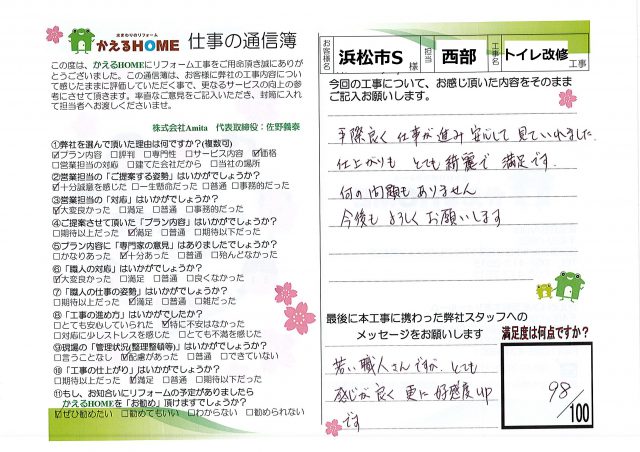 水まわりのリフォーム
かえるHOME
仕事の通信簿
この度は、かえるHOMEにリフォーム工事をご用命頂き誠にありが
とうございました。この通信簿は、お客様に弊社の工事内容につい
て感じたままに評価していただく事で、更なるサービスの向上の参
考にさせて頂きます。率直なご意見をご記入いただき、封筒に入れ
て担当者へお渡しくださいませ。
株式会社Amita 代表取締役：佐野義泰
①弊社を選んで頂いた理由は何ですか?(複数可)
☑プラン内容 □評判 □専門性 □サービス内容 ☑価格
□営業担当の対応 □建てた会社だから □当社の場所
②営業担当の「ご提案する姿勢」はいかがでしょうか？
☑十分誠意を感じた □一生懸命だった □普通 □事務的だった
③営業担当の「対応」はいかがでしょうか？
☑大変良かった □満足 □普通 □事務的だった
④ご提案させて頂いた「プラン内容」はいかがでしょうか？
□期待以上だった ☑満足 □普通 □期待以下だった
⑤プラン内容に「専門家の意見」はありましたでしょうか？
□かなりあった ☑十分あった □普通 □殆んどなかった
⑥「職人の対応」はいかがでしょうか？
☑大変良かった □満足 □普通 □良くなかった
⑦「職人の仕事の姿勢」はいかがでしょうか？
□期待以上だった ☑満足 □普通 □雑だった
⑧「工事の進め方」はいかがでしたか？
□とても安心していられた ☑特に不安はなかった
□対応に少しストレスを感じた □とても不満を感じた
⑨現場の「管理状況(整理整頓等)」はいかがでしょうか？
□言うことなし ☑配慮があった □普通 □できていない
⑩「工事の仕上がり」はいかがでしょうか？
□期待以上だった ☑満足 □普通 □期待以下だった
⑪もし、お知合いにリフォームの予定がありましたら
かえるHOMEを「お勧め」頂けますでしょうか？
☑ぜひ勧めたい □勧めてもいい □わからない □勧められない
お客様名 浜松市S 様 担当 西部 工事名 トイレ改修 工事
今回の工事について、お感じ頂いた内容をそのまま
ご記入お願いします。
手際良く仕事が進み安心して見ていれました.
仕上がりも とても綺麗で満足です.
何の問題もありません
今後も よろしくお願いします
最後に本工事に携わった弊社スタッフへの
メッセージをお願いします
若い職人さんですが、とても
感じが良く 更に好感度up
です
満足度は何点ですか？
98
/100